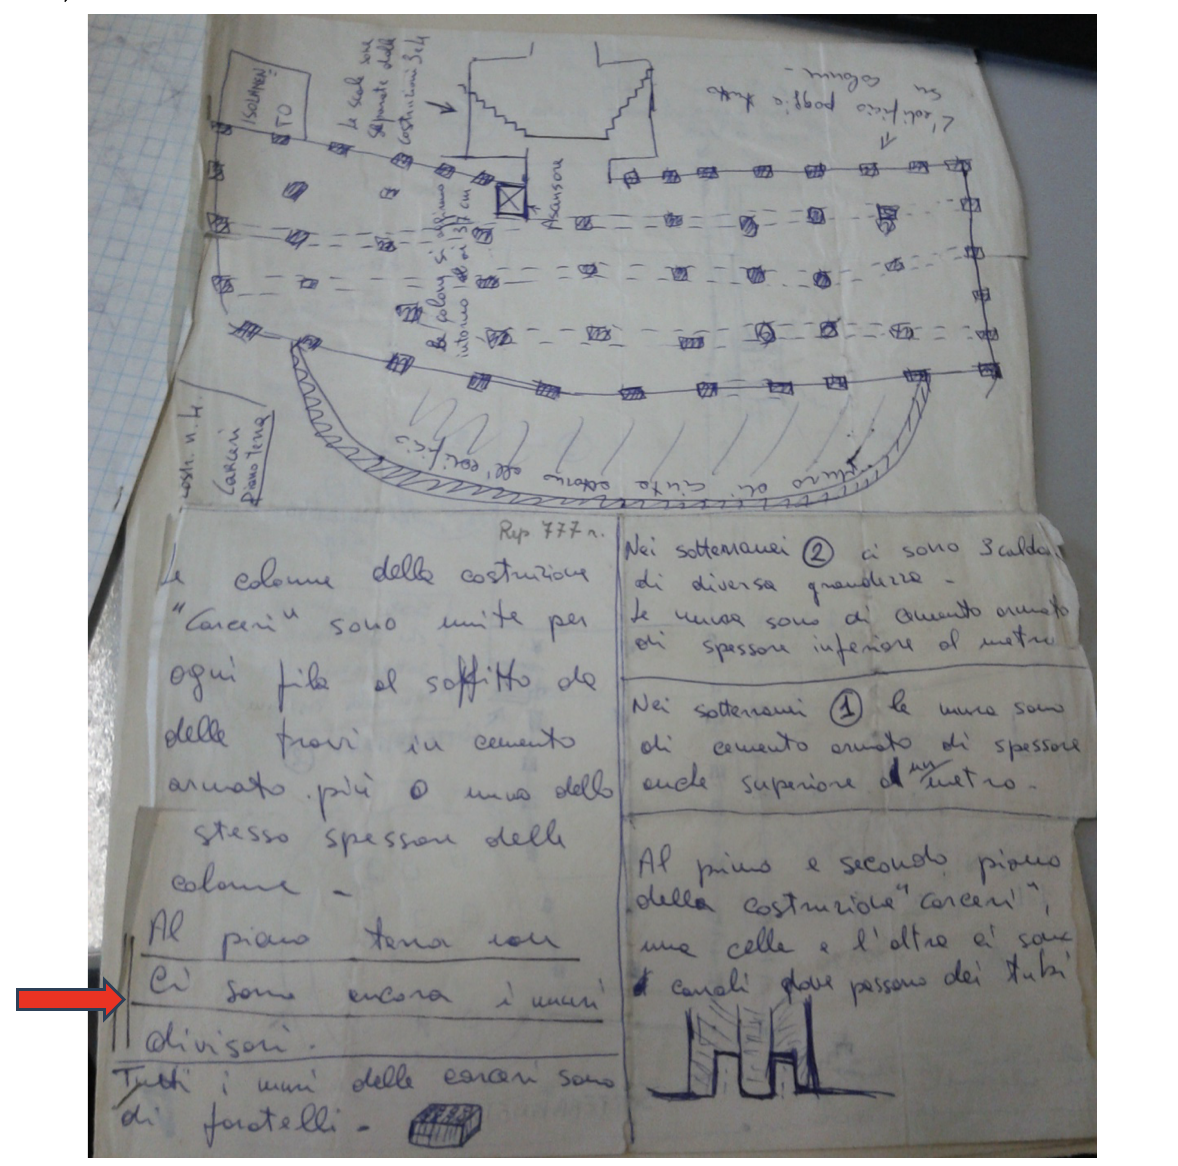 ISOLAMEN
TO
Le scale sono
separate dalle
costruzioni 3 e 4
L'edificio poggia tutto
su
colonne -
Ascensore
Le colonne si aggirano
intorno ai 37 cm
Muro di cinta attorno all'edificio
costr. n. 4.
Carceri
Piano Terra
Rep 777 n.
Le colonne della costruzione
"Carceri" sono unite per
ogni fila al soffitto da
delle travi in cemento
armato più o meno dello
stesso spessore delle
colonne -
Al piano terra non
Ci sono ancora i muri
divisori.
Tutti i muri delle carceri sono
di foratelli -
Nei sotterranei 2 ci sono 3 caldaie
di diversa grandezza -
Le mura sono di cemento armato
di spessore inferiore al metro
Nei sotterranei 1 le mura sono
di cemento armato di spessore
anche superiore al metro -
Al primo e secondo piano
della costruzione "Carceri",
una cella e l'altra ci sono
canali dove passano dei tubi